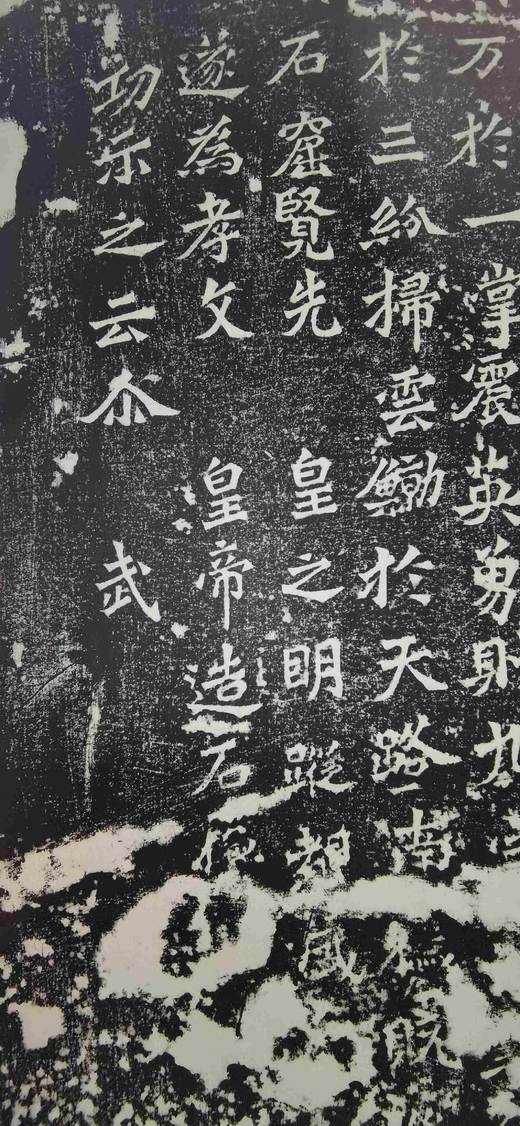 万於一掌震英勇則九
於三紛掃雲鯨於天路南穢既
石窟覽先皇之明蹤覩盛
遂為孝文皇帝造石像
功示之云尒武